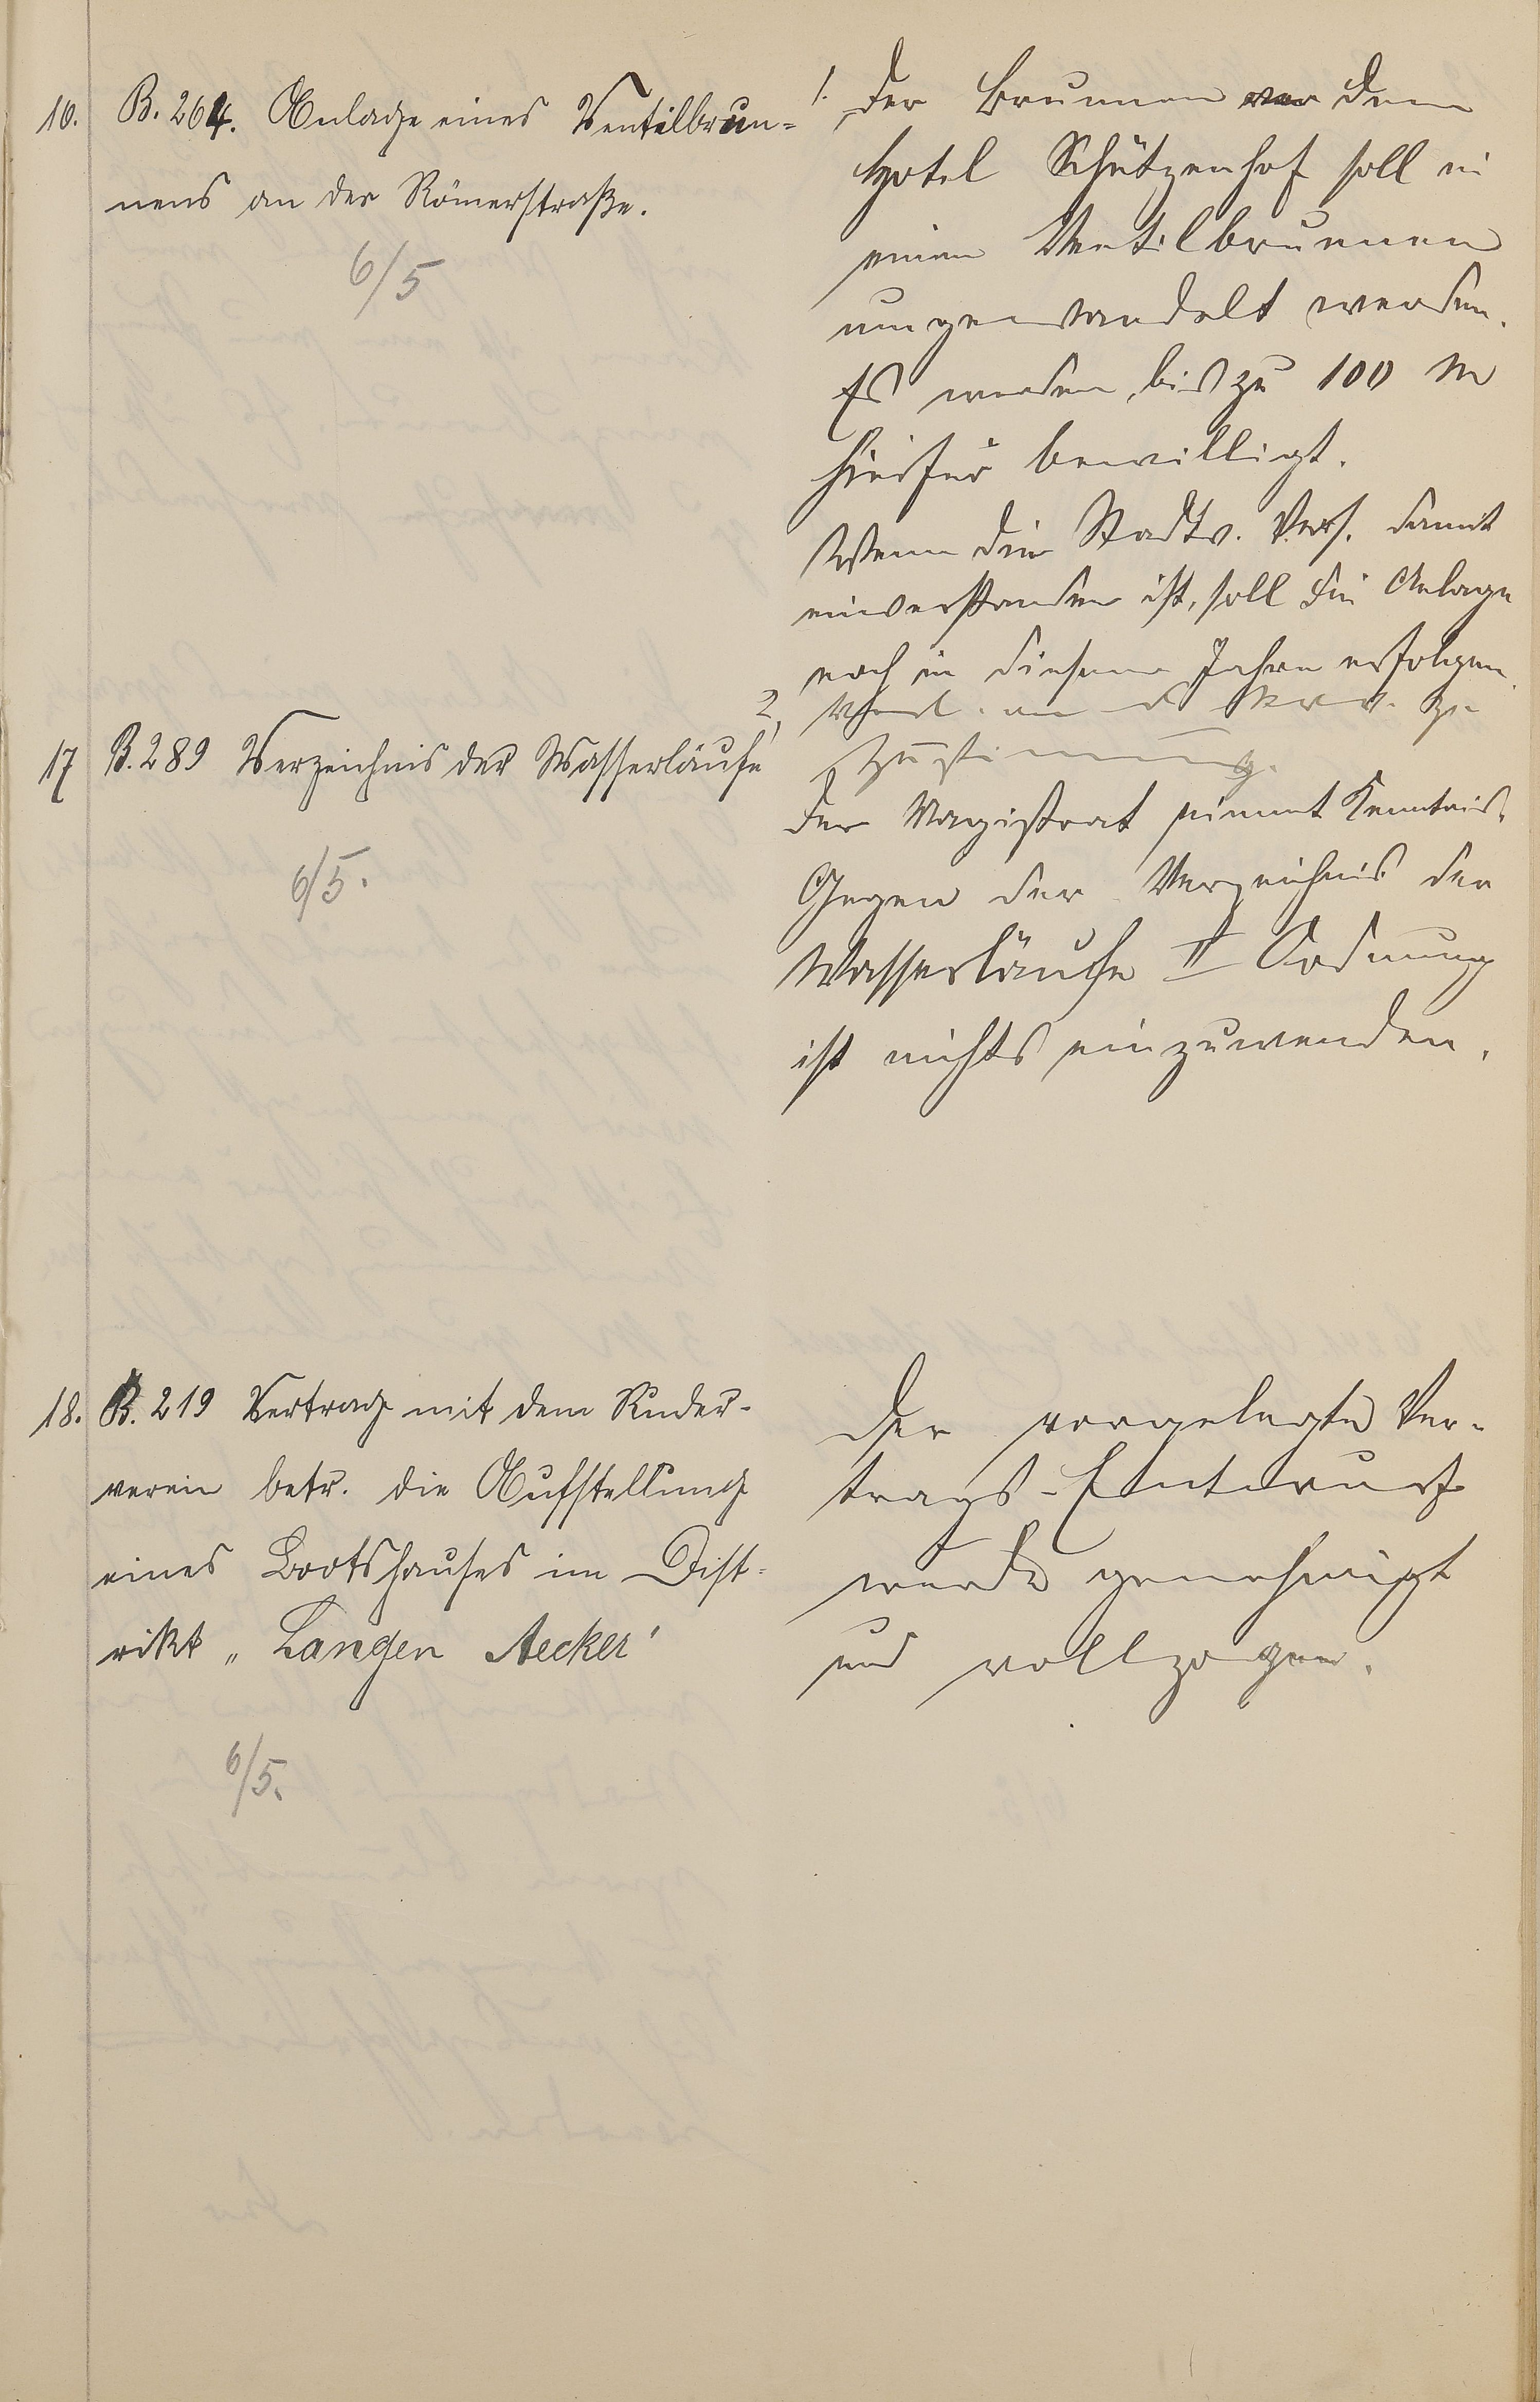 16. B. 264. Anlage eines Ventilbrun=
nens an der Römerstraße.
6/5
1. Der Brunnen vor dem
Hotel Schützenhof soll in
einen Ventilbrunnen
umgewandelt werden.
Es werden bis zu 100 M
hierfür bewilligt.
Wenn die Stadtv. Vers. damit
einverstanden ist, soll die Anlage
noch in diesem Jahre erfolgen.
2, an d zur
Zustimmung.
17 B. 289 Verzeichnis der Wasserläufe
6/5.
Der Magistrat nimmt Kenntnis.
Gegen der Verzeichnis der
Wasserläufe II Ordnung
ist nichts einzuwenden.
18. B. 219 Vertrag mit dem Ruder-
verein betr. die Aufstellung
eines Bootshauses im Dist=
rikt „Langen Aecker"
6/5.
Der vorgelegte Ver-
trags-Entwurf
wurde genehmigt
und vollzogen.